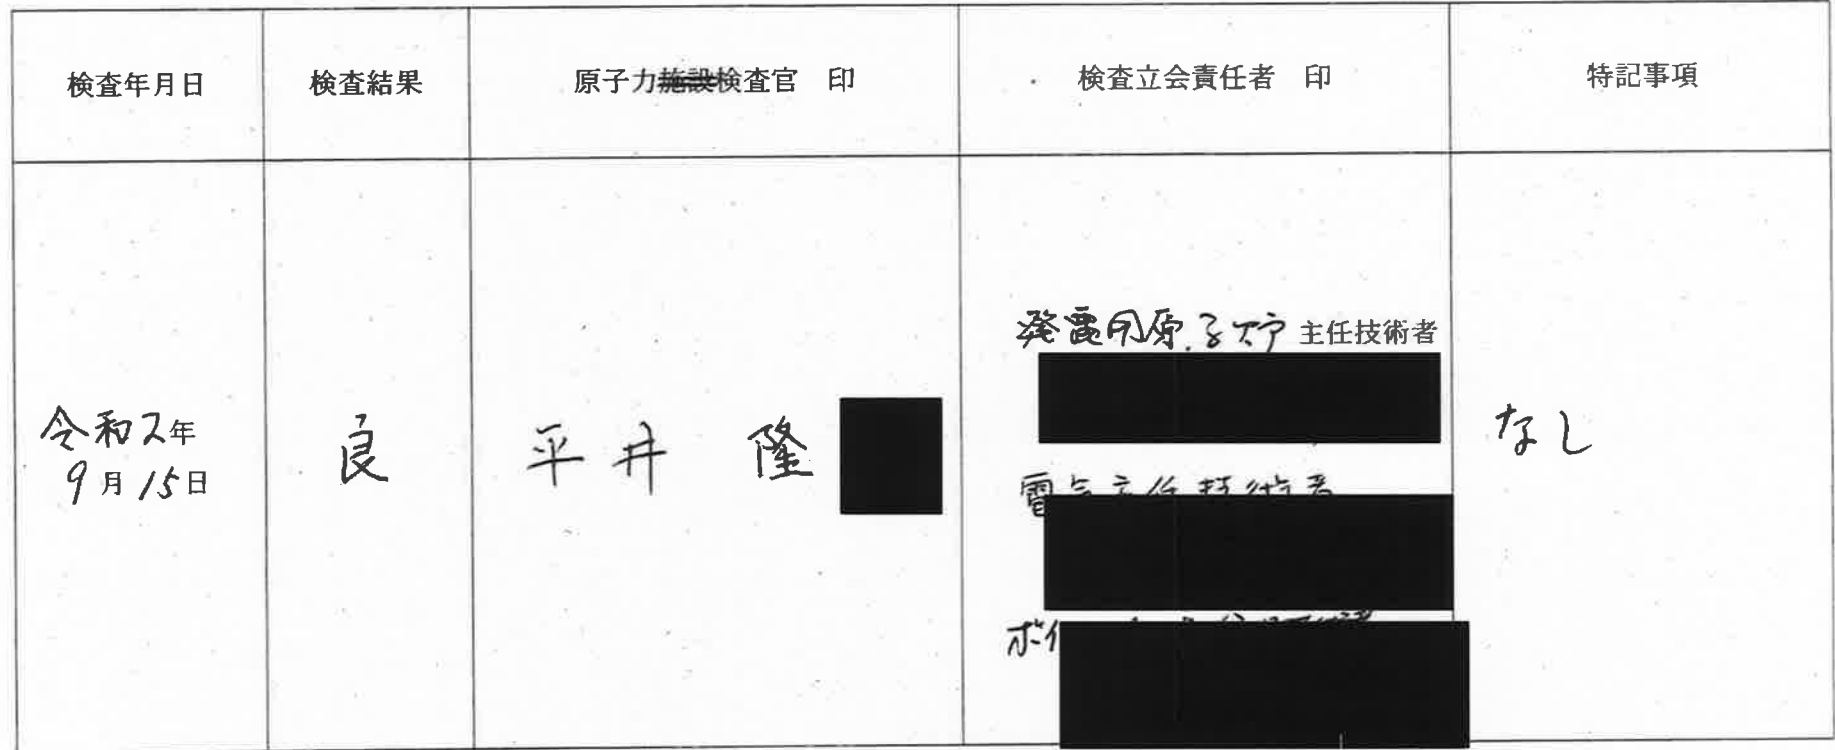 検査年月日
検査結果
原子力施設検査官 印
検査立会責任者 印
特記事項
令和2年
9月15日
良
平井 隆
発電用原子炉主任技術者
電気主任技術者
ボイ
なし